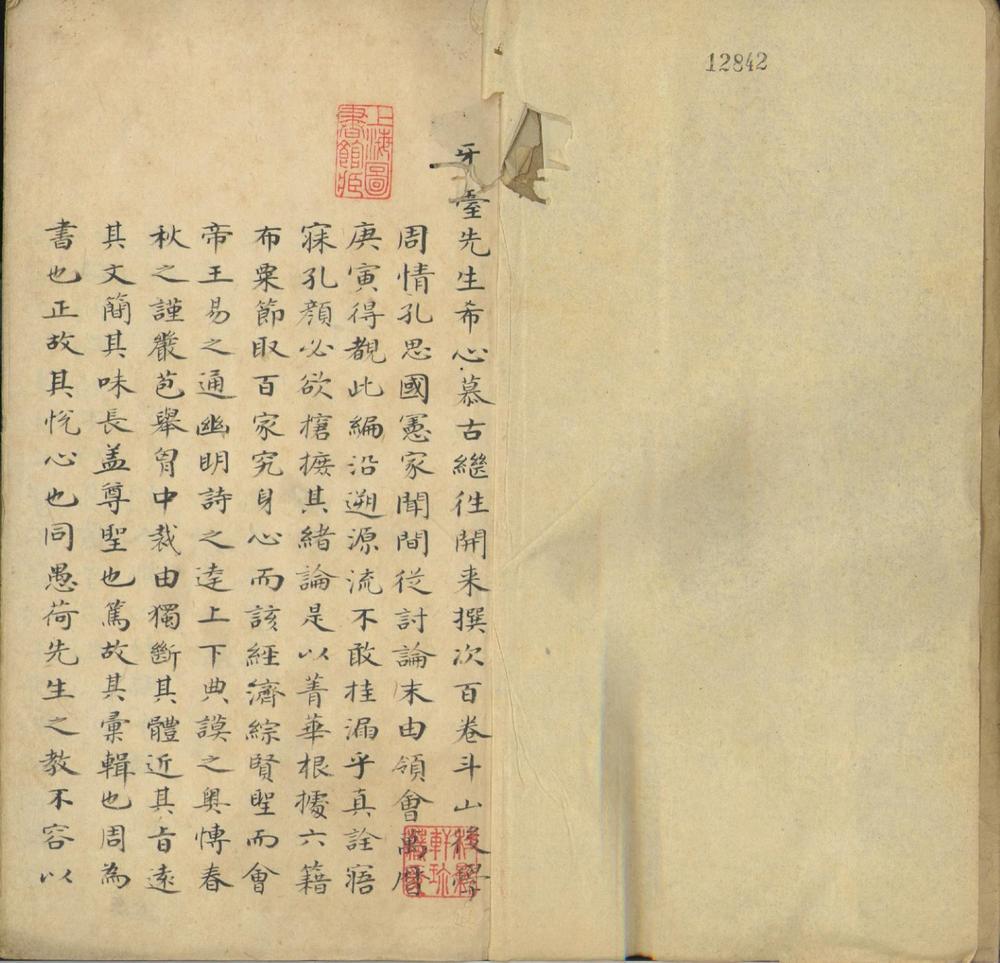 12842
上海圖書館藏
牙臺先生希心慕古繼往開来撰次百卷斗山後學
周情孔思國憲家聞間從討論末由領會萬曆
庚寅得覩此編沿遡源流不敢挂漏乎真詮寤
寐孔顏必欲摣摭其緒論是以菁華根據六籍
布粟節取百家究身心而該經濟綜賢聖而會
帝王易之通幽明詩之逹上下典謨之奥愽春
秋之謹嚴苞舉胷中裁由獨斷其體近其旨逺
其文簡其味長盖尊聖也篤故其彙輯也周為
書也正故其恱心也同愚荷先生之教不容以